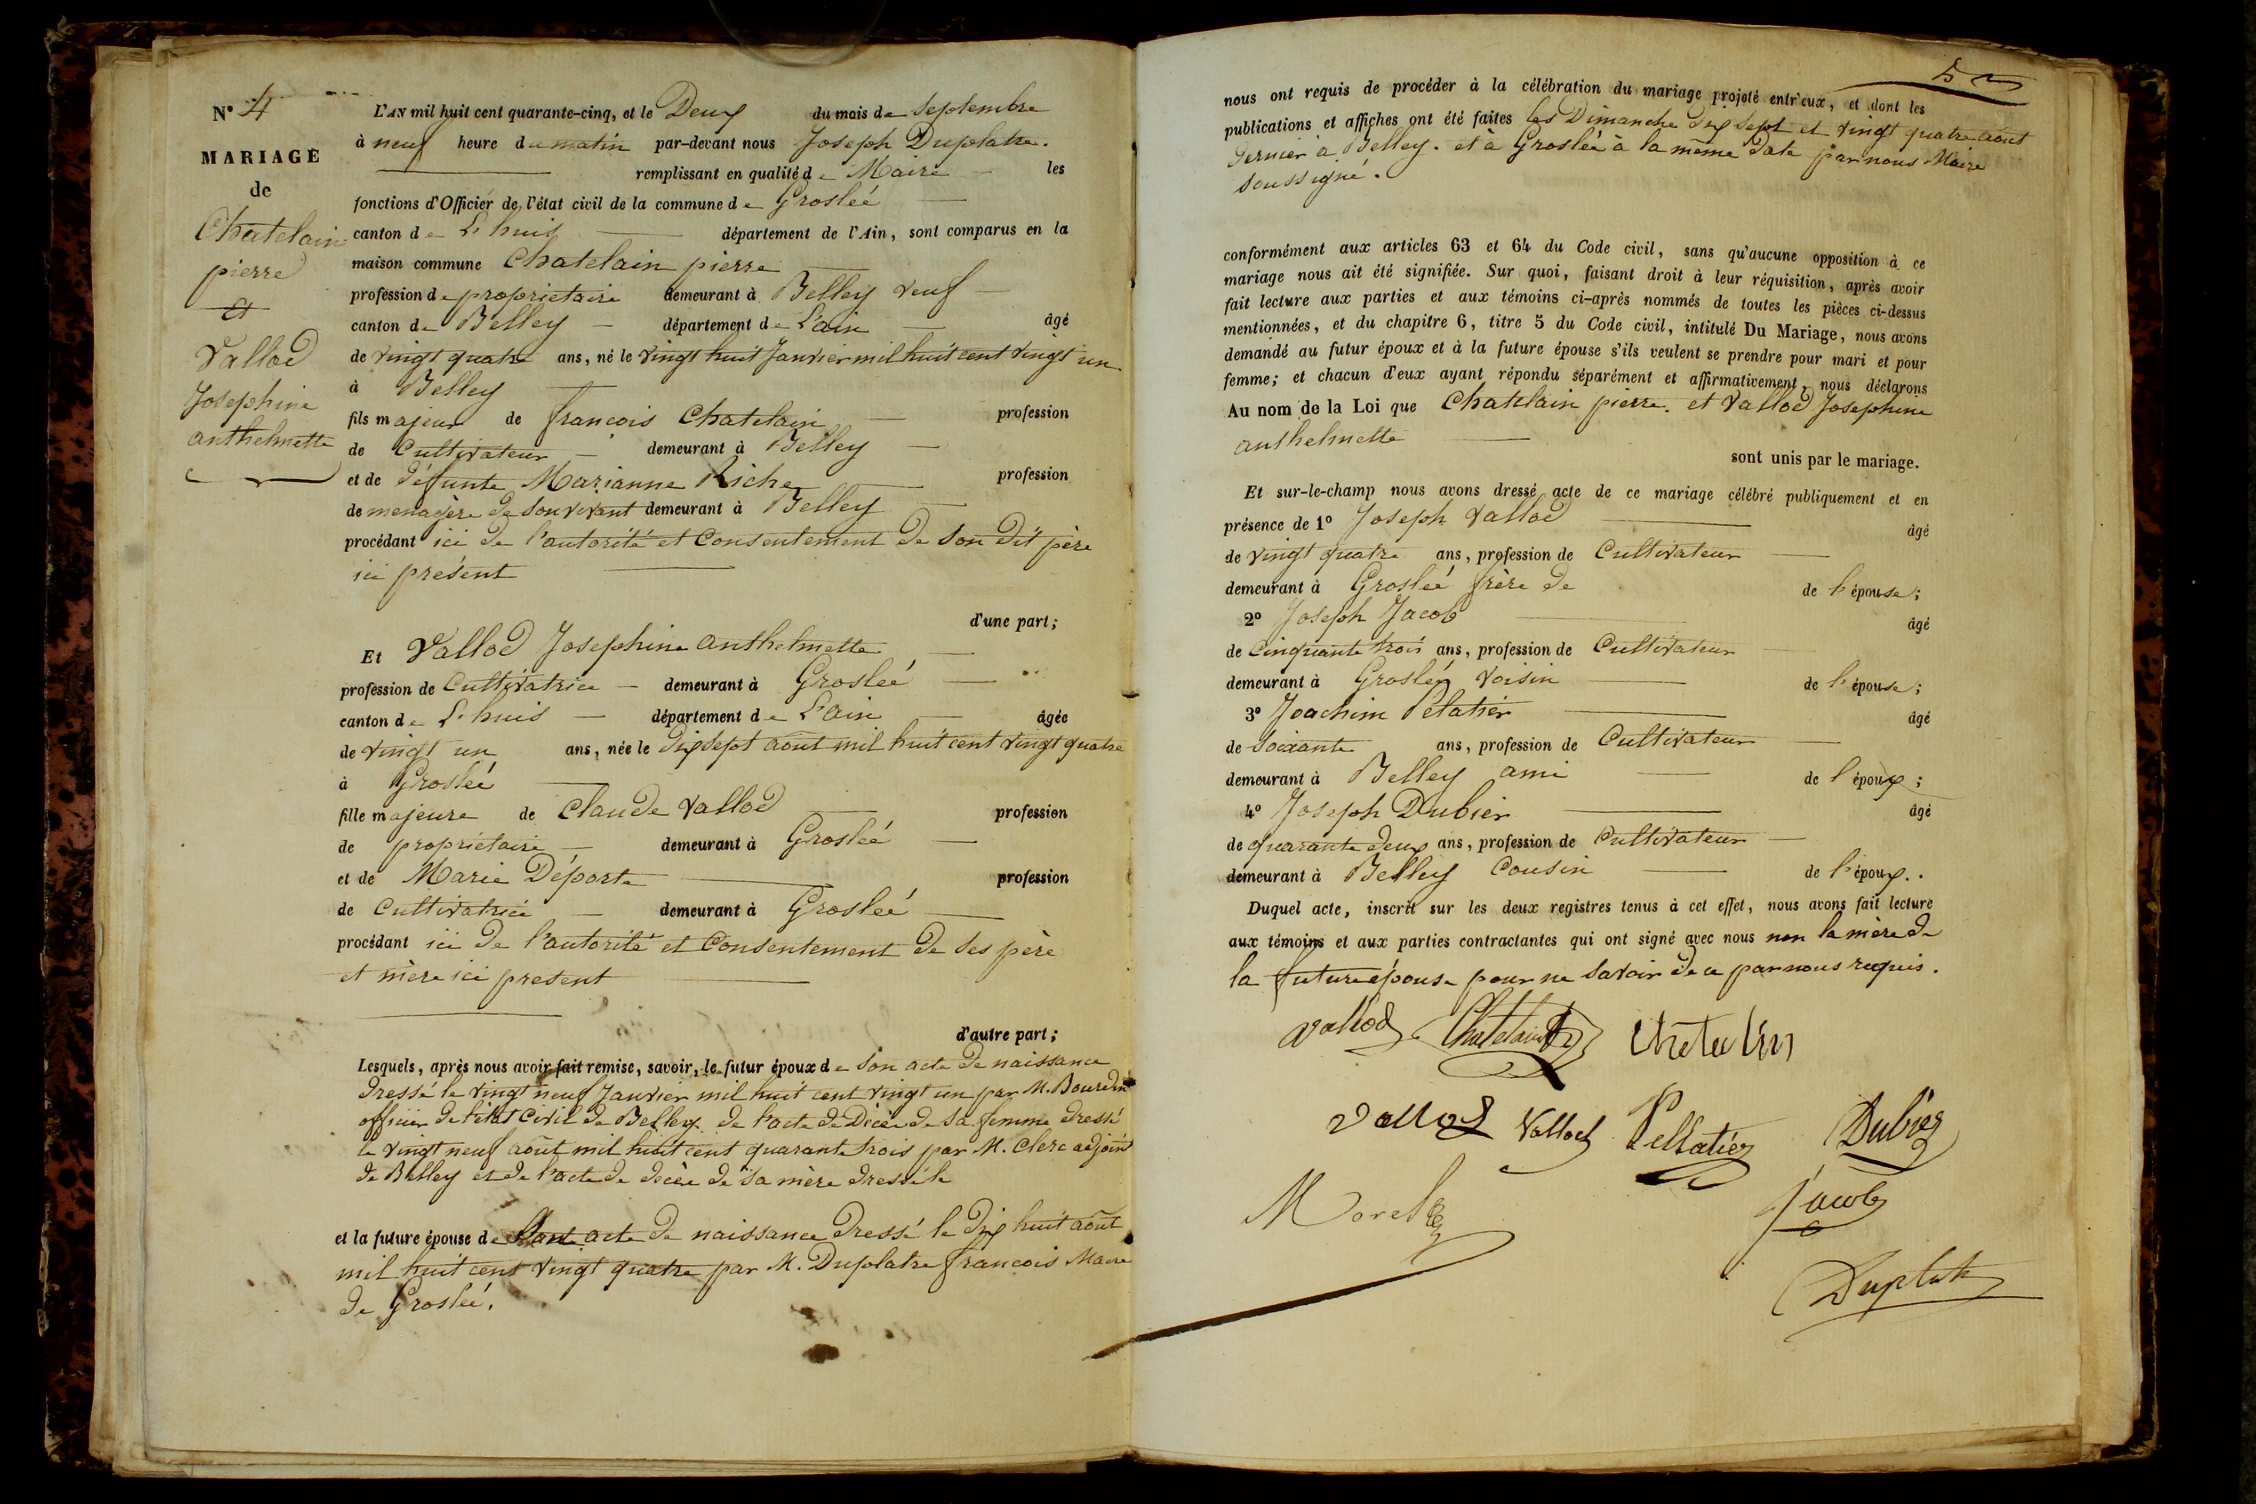 N° 4
MARIAGE
de
Chatelain
pierre
et
Vallod
Josephine
anthelmette
L'AN mil huit cent quarante-cinq, et le Deux du mois de Septembre
à neuf heure du matin par-devant nous Joseph Duplatre.
remplissant en qualité de Maire les
fonctions d'Officier de l'état civil de la commune de Groslée
canton de L'huis département de l'Ain, sont comparus en la
maison commune Chatelain pierre
profession de proprietaire demeurant à Belley veuf
canton de Belley département de L'ain âgé
de vingt quatre ans, né le vingt huit Janvier mil huit cent vingt un
à Belley
fils majeur de francois Chatelain profession
de Cultivateur demeurant à Belley
et de défunte Marianne Riche profession
de menagère de son vivant demeurant à Belley
procédant ici de l'autorité et Consentement de son dit père
ici présent
d'une part;
Et Vallod Josephine anthelmette
profession de Cultivatrice demeurant à Groslée
canton de L'huis département de L'ain âgée
de vingt un ans, née le dix sept aout mil huit cent vingt quatre
à Groslée
fille majeure de Claude Vallod profession
de propriétaire demeurant à Groslée
et de Marie Déporte profession
de Cultivatrice demeurant à Groslée
procédant ici de l'autorité et Consentement de ses père
et mère ici present
d'autre part;
Lesquels, après nous avoir fait remise, savoir, le futur époux de son acte de naissance
dressé le vingt neuf Janvier mil huit cent vingt un par M. Bouredin
officier de l'état Civil de Belley de l'acte de Décè de sa femme dressé
le vingt neuf aout mil huit cent quarante trois par M. Clerc adjoint
de Belley et de l'acte de décè de sa mère dressé le
et la future épouse de acte de naissance dressé le dix huit aout
mil huit cent vingt quatre par M. Duplatre francois Maire
de Groslée.
5
nous ont requis de procéder à la célébration du mariage projeté entr'eux, et dont les
publications et affiches ont été faites les Dimanche dix sept et vingt quatre aout
dernier à Belley. et à Groslée à la même date par nous Maire
soussigné.
conformément aux articles 63 et 64 du Code civil, sans qu'aucune opposition à ce
mariage nous ait été signifiée. Sur quoi, faisant droit à leur réquisition, après avoir
fait lecture aux parties et aux témoins ci-après nommés de toutes les pièces ci-dessus
mentionnées, et du chapitre 6, titre 5 du Code civil, intitulé Du Mariage, nous avons
demandé au futur époux et à la future épouse s'ils veulent se prendre pour mari et pour
femme; et chacun d'eux ayant répondu séparément et affirmativement, nous déclarons
Au nom de la Loi que Chatelain pierre. et Vallod Josephine
anthelmette
sont unis par le mariage.
Et sur-le-champ nous avons dressé acte de ce mariage célébré publiquement et en
présence de 1° Joseph Vallod âgé
de vingt quatre ans, profession de Cultivateur
demeurant à Groslée frère de de l'épouse;
2° Joseph Jacob âgé
de Cinquante trois ans, profession de Cultivateur
demeurant à Groslée voisin de l'épouse;
3° Joachim Pelatier âgé
de soixante ans, profession de Cultivateur
demeurant à Belley ami de l'époux;
4° Joseph Dubier âgé
de quarante deux ans, profession de Cultivateur
demeurant à Belley Cousin de l'époux.
Duquel acte, inscrit sur les deux registres tenus à cet effet, nous avons fait lecture
aux témoins et aux parties contractantes qui ont signé avec nous non la mère de
la future épouse pour ne savoir de ce par nous requis.
Vallod Chatelain Chatelin
Vallod Vallod Pellatiér Dubier
Morel Jacob
Duplatre